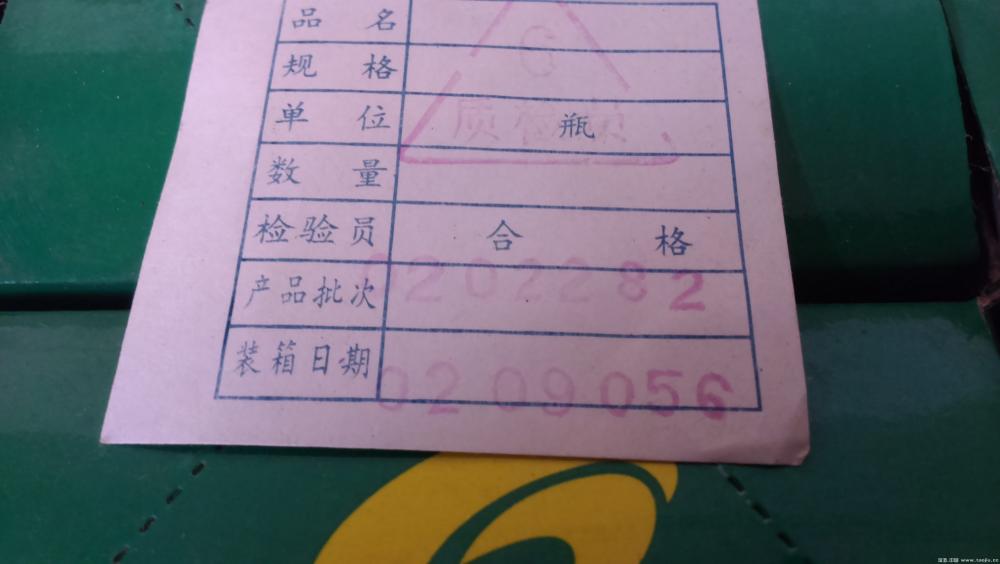 品 名
6
规 格
单 位 瓶
质检员
数 量
检验员 合 格
产品批次 0202282
装箱日期 0209056